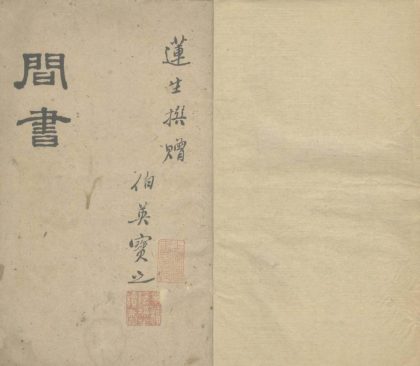 間書
蓮生撰贈
伯英寳之